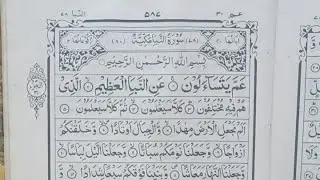 النبا ٧٨ ٥٨٧ عم ٣٠
سُورَةُ النَّبَإِ مَكِّيَّةٌ
بِسْمِ اللهِ الرَّحْمٰنِ الرَّحِيْمِ
عَمَّ يَتَسَآءَلُوْنَ ۝ عَنِ النَّبَإِ الْعَظِيْمِ ۝ الَّذِيْ
هُمْ فِيْهِ مُخْتَلِفُوْنَ ۝ كَلَّا سَيَعْلَمُوْنَ ۝ ثُمَّ كَلَّا سَيَعْلَمُوْنَ ۝
اَلَمْ نَجْعَلِ الْاَرْضَ مِهٰدًا ۝ وَّالْجِبَالَ اَوْتَادًا ۝ وَّخَلَقْنٰكُمْ
اَزْوَاجًا ۝ وَّجَعَلْنَا نَوْمَكُمْ سُبَاتًا ۝ وَّجَعَلْنَا الَّيْلَ لِبَاسًا ۝
وَّجَعَلْنَا النَّهَارَ مَعَاشًا ۝ وَّبَنَيْنَا فَوْقَكُمْ سَبْعًا شِدَادًا ۝